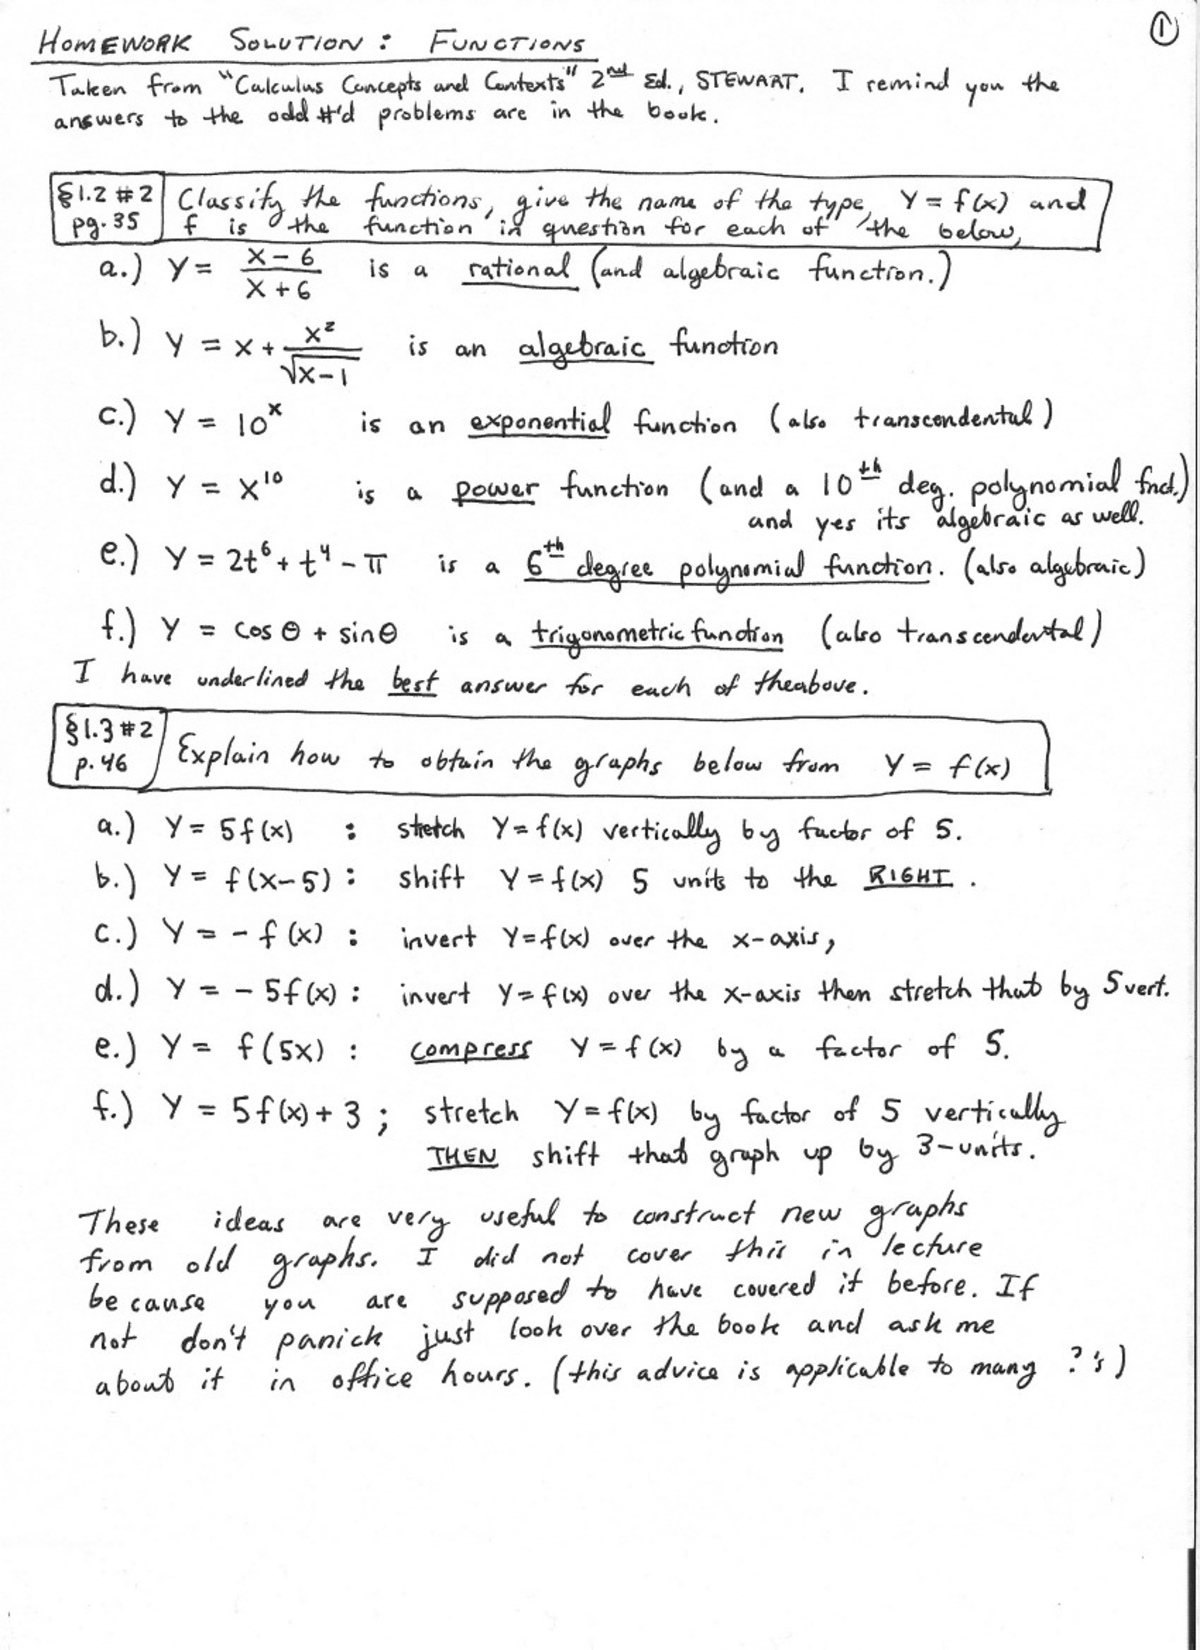 HOMEWORK SOLUTION : FUNCTIONS
①
Taken from "Calculus Concepts and Contexts" 2nd Ed., STEWART. I remind you the
answers to the odd #'d problems are in the book.
§1.2 #2 Classify the functions, give the name of the type, Y = f(x) and
pg. 35 f is the function in question for each of the below,
a.) Y = (x - 6)/(x + 6) is a rational (and algebraic function.)
b.) Y = x + x²/√(x-1) is an algebraic function
c.) Y = 10^x is an exponential function (also transcendental)
d.) Y = x^10 is a power function (and a 10th deg. polynomial fnct.)
and yes its algebraic as well.
e.) Y = 2t⁶ + t⁴ - π is a 6th degree polynomial function. (also algebraic)
f.) Y = cos θ + sin θ is a trigonometric function (also transcendental)
I have underlined the best answer for each of theabove.
§1.3 #2
p. 46 Explain how to obtain the graphs below from Y = f(x)
a.) Y = 5f(x) : stretch Y = f(x) vertically by factor of 5.
b.) Y = f(x-5) : shift Y = f(x) 5 units to the RIGHT .
c.) Y = - f(x) : invert Y = f(x) over the x-axis,
d.) Y = - 5f(x) : invert Y = f(x) over the x-axis then stretch that by 5 vert.
e.) Y = f(5x) : compress Y = f(x) by a factor of 5.
f.) Y = 5f(x) + 3 ; stretch Y = f(x) by factor of 5 vertically
THEN shift that graph up by 3-units.
These ideas are very useful to construct new graphs
from old graphs. I did not cover this in lecture
because you are supposed to have covered it before. If
not don't panick just look over the book and ask me
about it in office hours. (this advice is applicable to many ?'s)